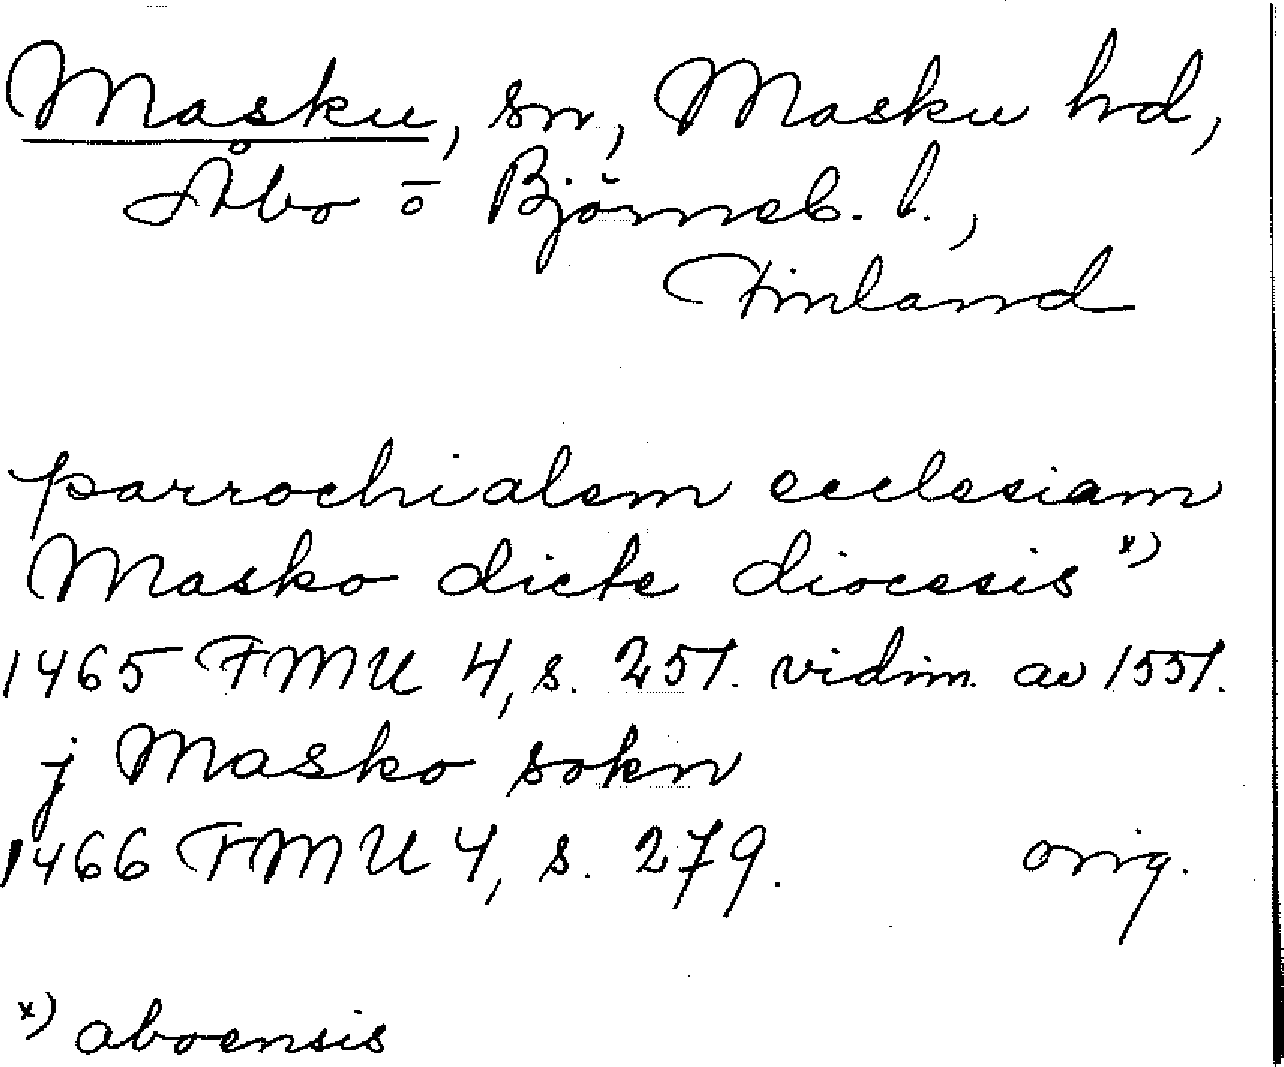 Masku, sn, Masku hd,
Åbo o Björneb. l.,
Finland
parrochialem ecclesiam
Masko dicte diocesis x)
1465 FMU 4, s. 251. vidim. av 1551.
j Masko sokn
1466 FMU 4, s. 279. orig.
x) aboensis